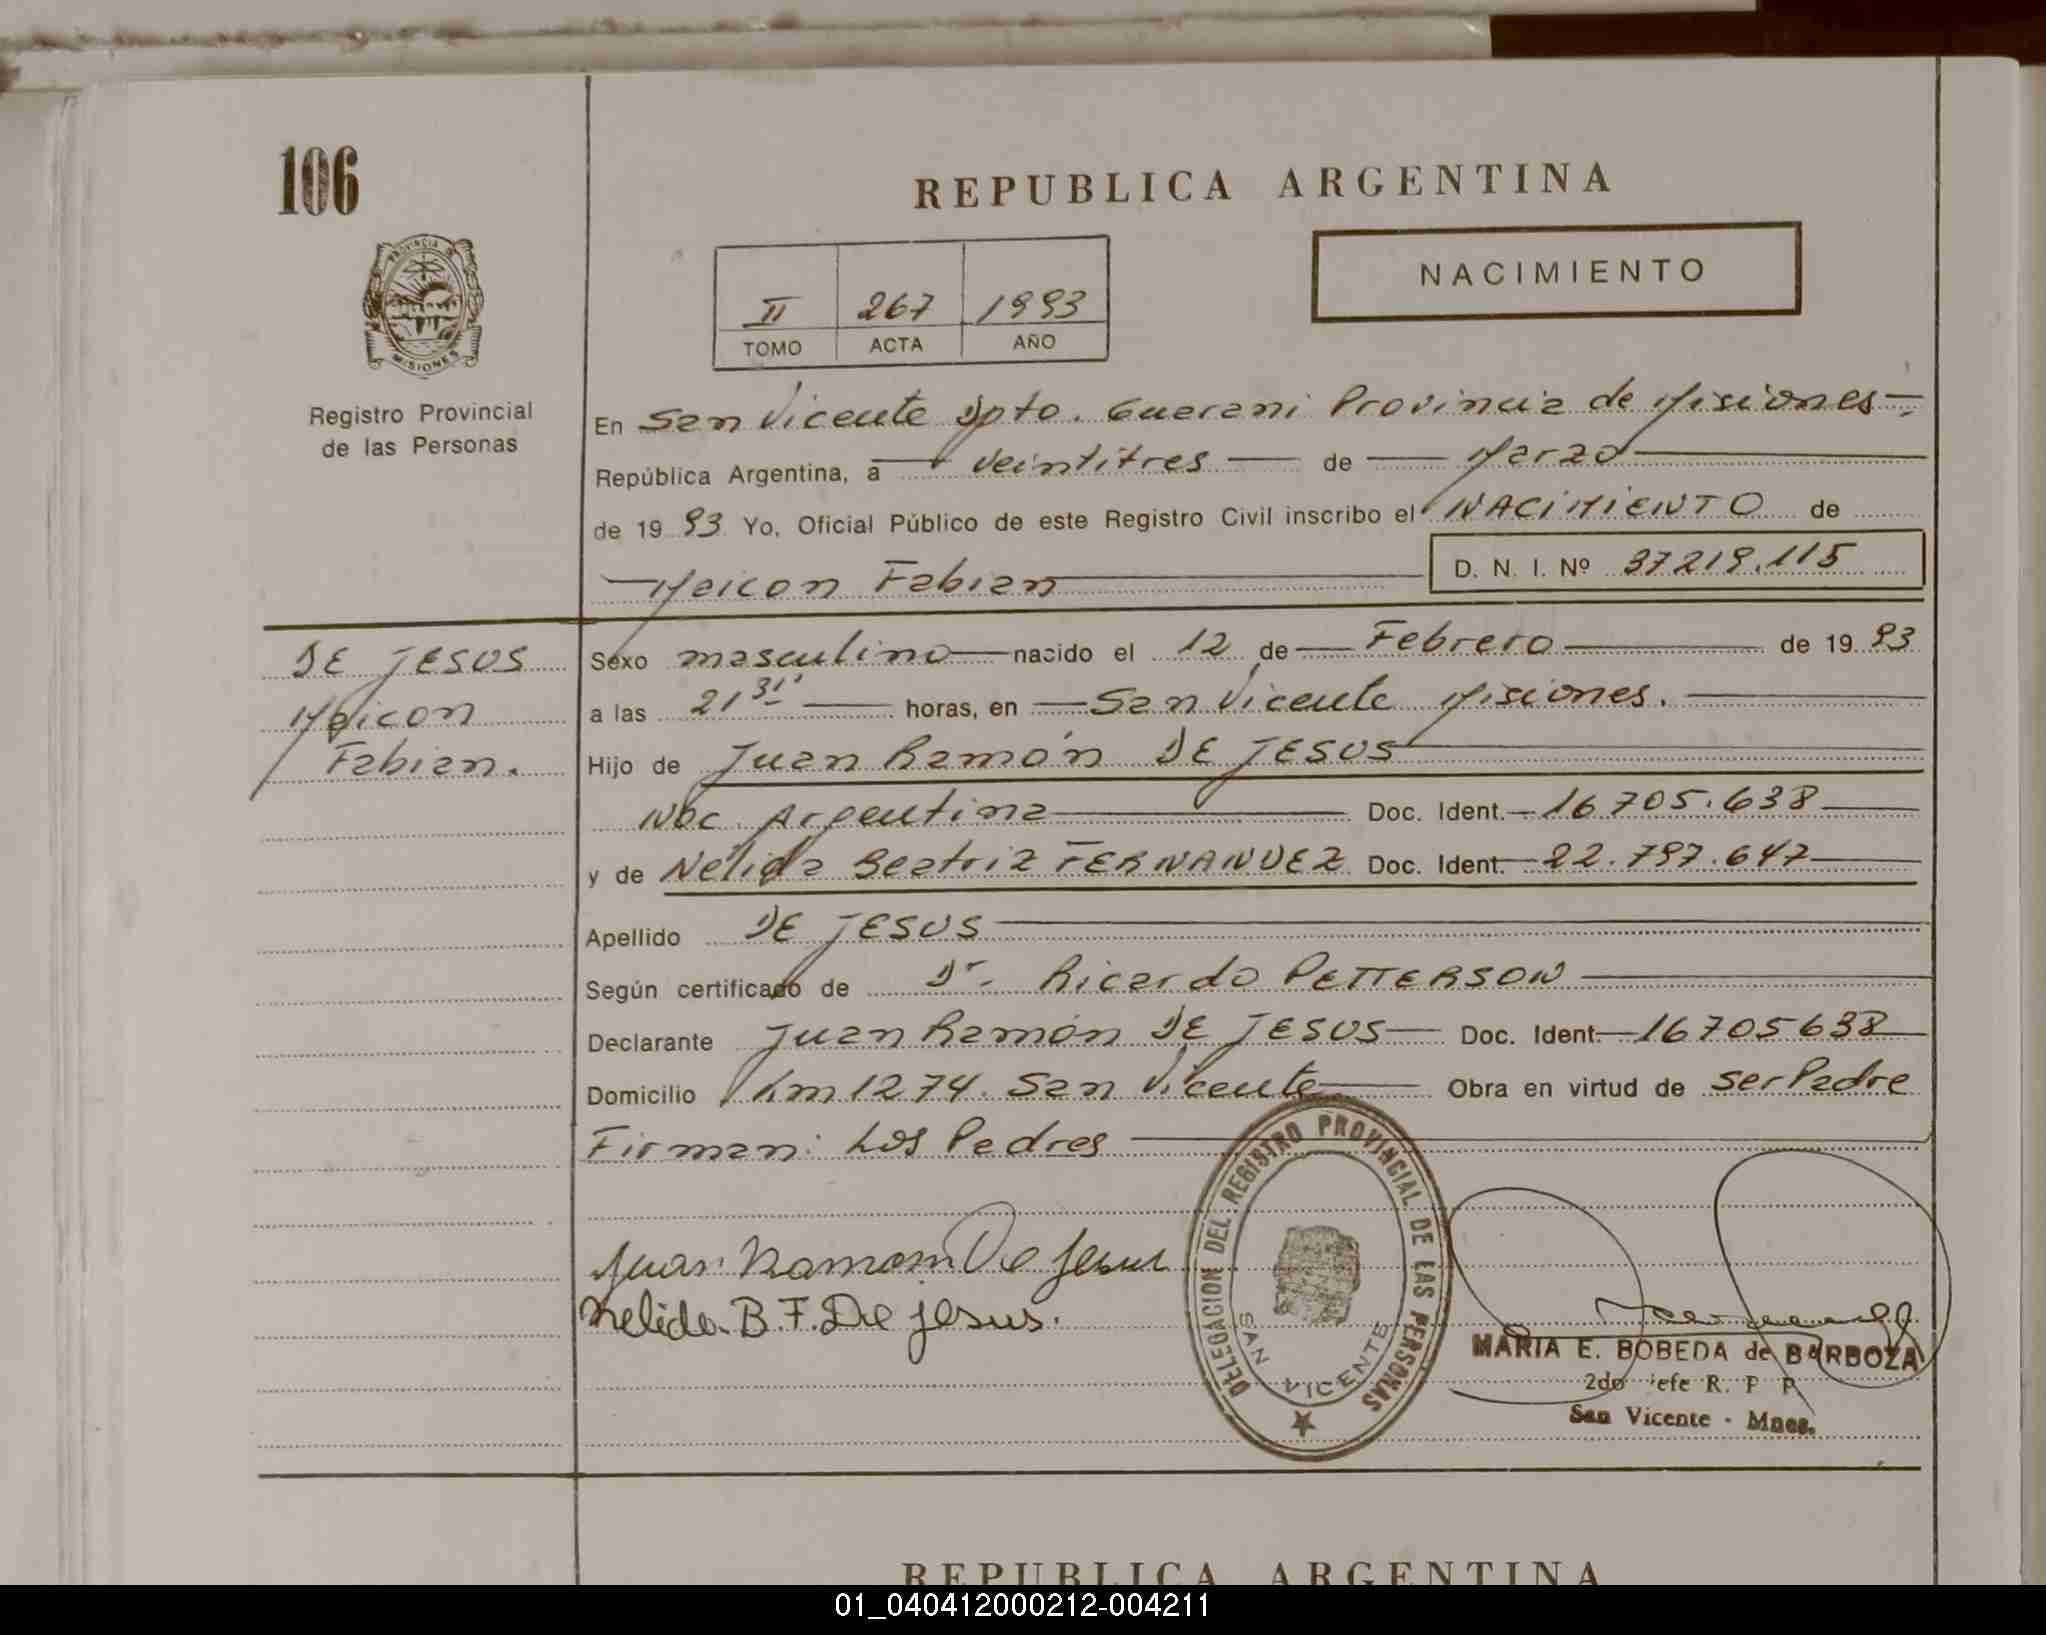 106
REPUBLICA ARGENTINA
NACIMIENTO
II 267 1993
TOMO ACTA AÑO
PROVINCIA DE MISIONES
Registro Provincial
de las Personas
En San Vicente Dpto. Guarani Provincia de Misiones
República Argentina, a veintitres de Marzo
de 1993 Yo, Oficial Público de este Registro Civil inscribo el NACIMIENTO de
Maicon Fabian D. N. I. Nº 37219.115
DE JESUS
Maicon
Fabian.
Sexo masculino nacido el 12 de Febrero de 1993
a las 21 31' horas, en San Vicente Misiones.
Hijo de Juan Ramón DE JESUS
Nac. Argentina Doc. Ident. 16705.638
y de Nélida Beatriz FERNANDEZ Doc. Ident. 22.797.647
Apellido DE JESUS
Según certificado de Dr. Ricardo PETTERSON
Declarante Juan Ramón DE JESUS Doc. Ident. 16705638
Domicilio Km 1274. San Vicente Obra en virtud de ser Padre
Firman: Los Padres
Juan Ramom De Jesus
Nelida B. F. De Jesus.
DELEGACION DEL REGISTRO PROVINCIAL DE LAS PERSONAS
SAN VICENTE
MARIA E. BOBEDA de BARBOZA
2do Jefe R. P. P.
San Vicente - Mnes.
REPUBLICA ARGENTINA
01_040412000212-004211